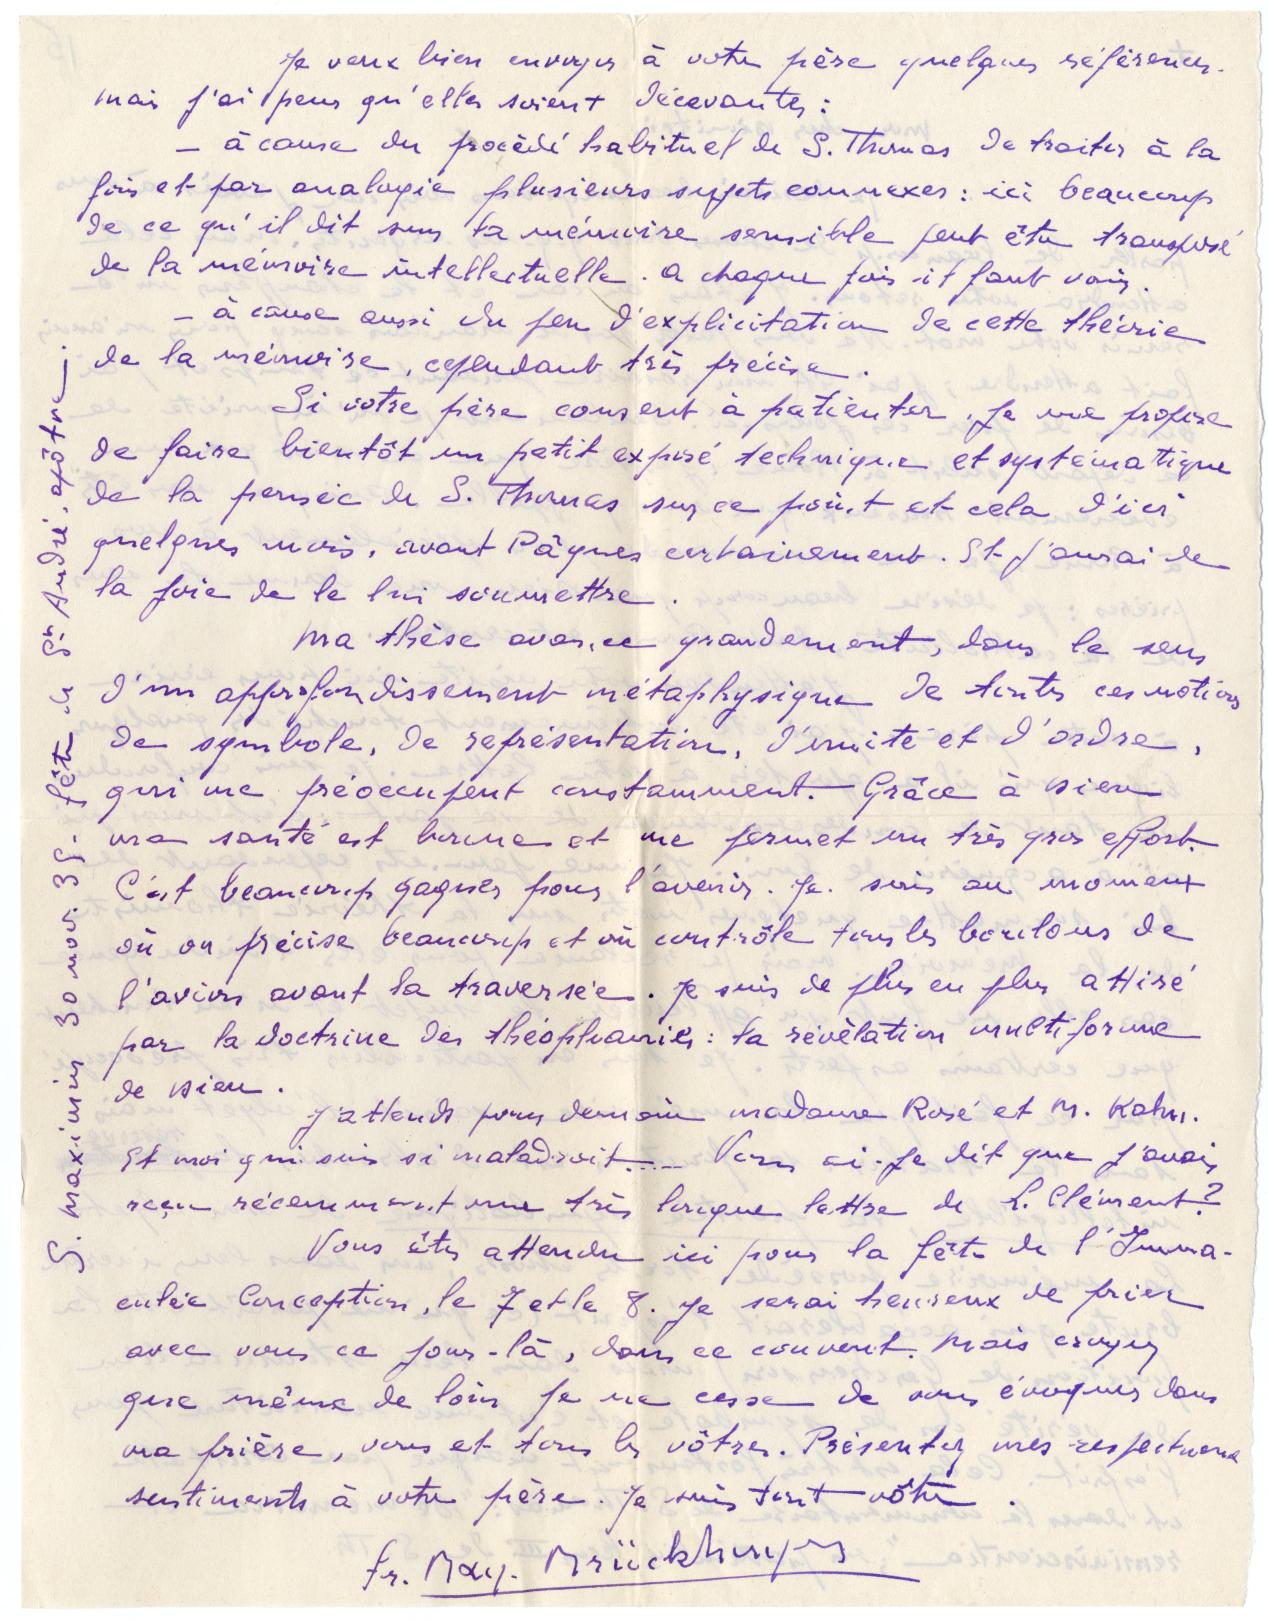 Je veux bien envoyer à votre père quelques références.
mais j'ai peur qu'elles soient décevantes :
– à cause du procédé habituel de S. Thomas de traiter à la
fois et par analogie plusieurs sujets connexes : ici beaucoup
de ce qu'il dit sur la mémoire sensible peut être transposé
de la mémoire intellectuelle. A chaque fois il faut voir.
– à cause aussi du peu d'explicitation de cette théorie
de la mémoire, cependant très précise.
Si votre père consent à patienter, je me propose
de faire bientôt un petit exposé technique et systématique
de la pensée de S. Thomas sur ce point et cela d'ici
quelques mois, avant Pâques certainement. Et j'aurai de
la joie de le lui soumettre.
Ma thèse avance grandement, dans le sens
d'un approfondissement métaphysique de toutes ces notions
de symbole, de représentation, d'unité et d'ordre,
qui me préoccupent constamment. Grâce à Dieu
ma santé est bonne et me permet un très gros effort.
C'est beaucoup gagner pour l'avenir. Je suis au moment
où on précise beaucoup et où contrôle tous les boulons de
l'avion avant la traversée. Je suis de plus en plus attiré
par la doctrine des théophanies : la révélation multiforme
de Dieu.
J'attends pour demain madame Rosé et M. Kahn.
Et moi qui suis si maladroit.... Vous ai-je dit que j'avais
reçu récemment une très longue lettre de R. Clément ?
Vous êtes attendu ici pour la fête de l'Imma-
culée Conception, le 7 et le 8. Je serai heureux de prier
avec vous ce jour-là, dans ce couvent. Mais croyez
que même de loin je ne cesse de vous évoquer dans
ma prière, vous et tous les vôtres. Présentez mes respectueux
sentiments à votre père. Je suis tout vôtre.
fr. May. Brückberger
S. Maximin 30 nov. 35 - fête de St André, apôtre.